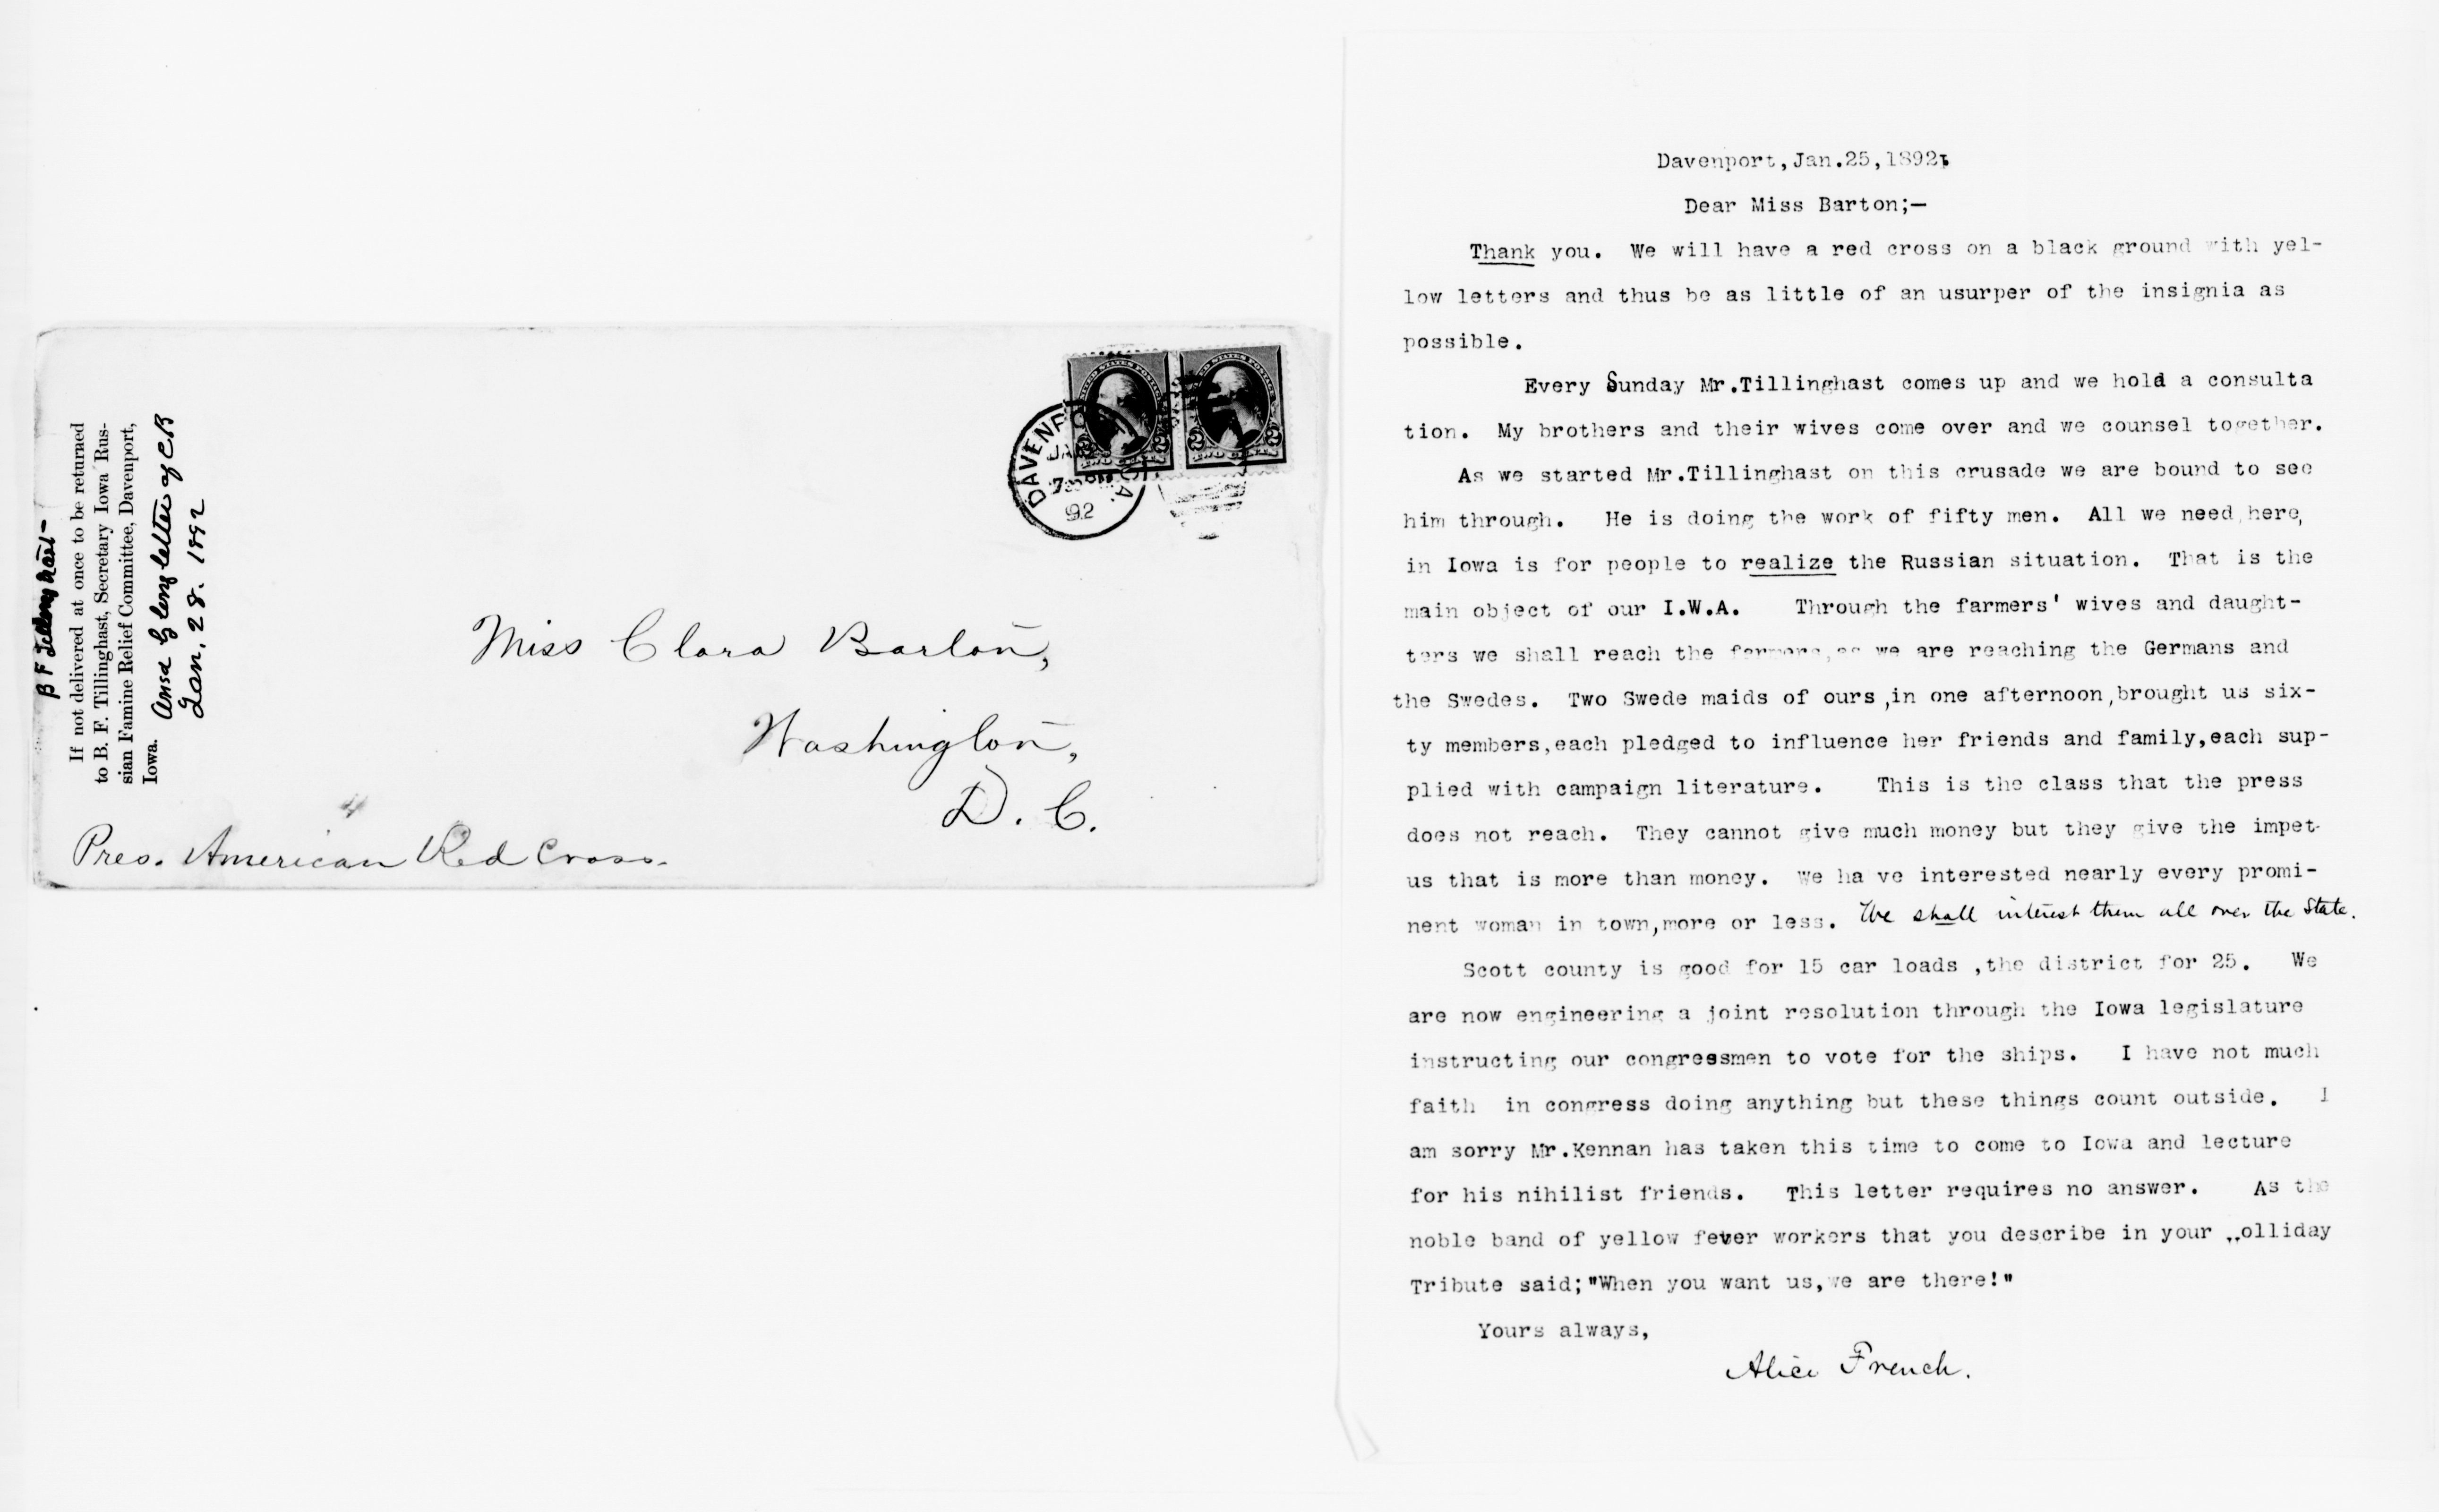 B F Tillinghast -
If not delivered at once to be returned
to B. F. Tillinghast, Secretary Iowa Rus-
sian Famine Relief Committee, Davenport,
Iowa.
Ansd by long letter of CB
Jan, 28. 1892
DAVENPO IOA.
JAN
7
92
UNITED STATES POSTAGE
2 2
TWO CENTS
UNITED STATES POSTAGE
2 2
TWO CENTS
Miss Clara Barton,
Washington,
D. C.
Pres. American Red Cross.
Davenport,Jan.25,1892.
Dear Miss Barton;—
Thank you. We will have a red cross on a black ground with yel-
low letters and thus be as little of an usurper of the insignia as
possible.
Every Sunday Mr.Tillinghast comes up and we hold a consulta
tion. My brothers and their wives come over and we counsel together.
As we started Mr.Tillinghast on this crusade we are bound to see
him through. He is doing the work of fifty men. All we need,here,
in Iowa is for people to realize the Russian situation. That is the
main object of our I.W.A. Through the farmers' wives and daught-
ters we shall reach the farmers,as we are reaching the Germans and
the Swedes. Two Swede maids of ours,in one afternoon,brought us six-
ty members,each pledged to influence her friends and family,each sup-
plied with campaign literature. This is the class that the press
does not reach. They cannot give much money but they give the impet-
us that is more than money. We ha ve interested nearly every promi-
nent woman in town,more or less. We shall interest them all over the State.
Scott county is good for 15 car loads ,the district for 25. We
are now engineering a joint resolution through the Iowa legislature
instructing our congressmen to vote for the ships. I have not much
faith in congress doing anything but these things count outside. I
am sorry Mr.Kennan has taken this time to come to Iowa and lecture
for his nihilist friends. This letter requires no answer. As the
noble band of yellow fever workers that you describe in your olliday
Tribute said;"When you want us,we are there!"
Yours always,
Alice French.